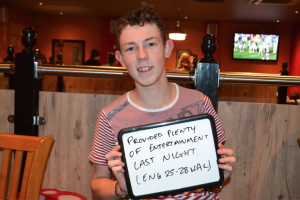 PROVIDED PLENTY
OF ENTERTAINMENT
LAST NIGHT.
(ENG 25-28 WAL)